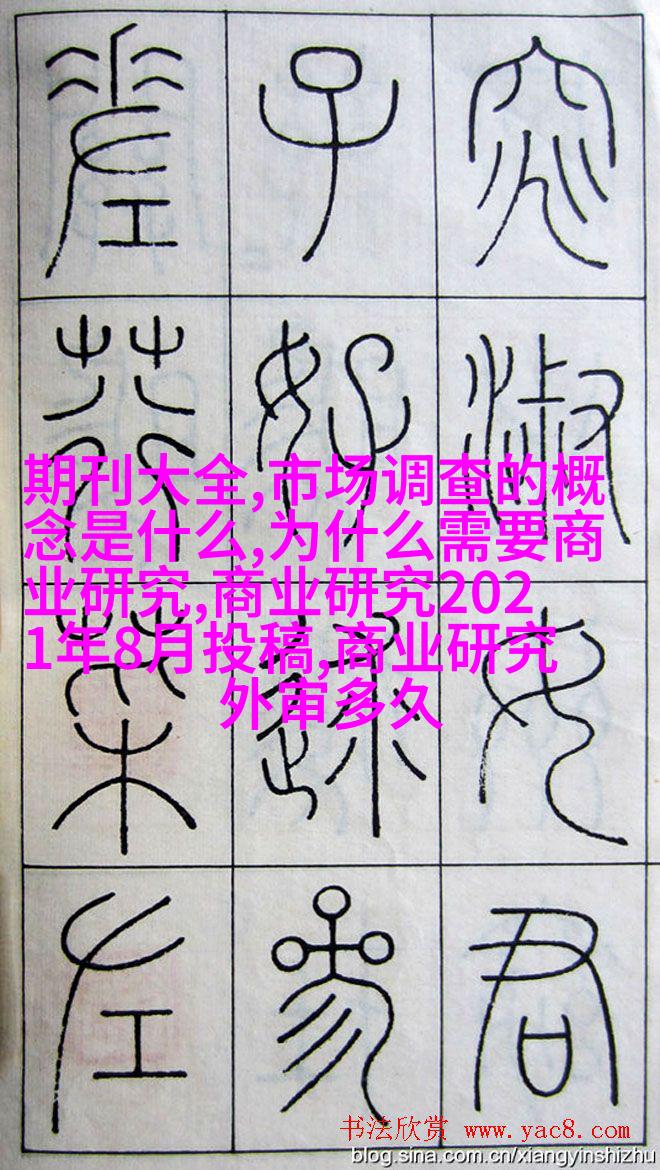 窕淑女君
子好逑參
差荇菜左
期刊大全,市场调查的概
念是什么,为什么需要商
业研究,商业研究202
1年8月投稿,商业研究
外审多久
书法欣赏 www.yac8.com
blog.sina.com.cn/xiangyinshizhu